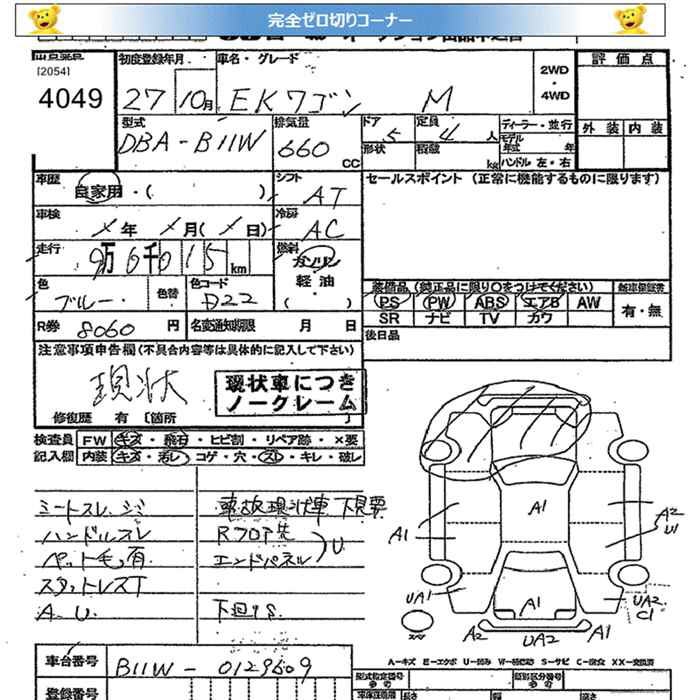 完全ゼロ切りコーナー
[2054]
4049
初度登録年月
27 10月
車名・グレード
EKワゴン M
2WD
・
4WD
評価点
外装 内装
型式
DBA-B11W
排気量
660 CC
ドア 5
定員 4 人
形状
積載 kg
ディーラー・並行
モデル年式 年
ハンドル 左・右
車歴
自家用・( )
シフト
AT
セールスポイント (正常に機能するものに限ります)
車検
年 月( 日)
冷房
AC
走行
9万6千015 km
燃料
ガソリン
軽油
・( )
色
ブルー
色替
色コード
D22
装備品 (純正品に限り○をつけてください)
PS PW ABS エアB AW
SR ナビ TV カワ
新車保証書
有・無
R券 8060 円
名変通知期限 月 日
後日品
注意事項申告欄(不具合内容等は具体的に記入して下さい)
現状
現状車につき
ノークレーム
修復歴 有 〔箇所
検査員
記入欄
FW キズ・飛石・ヒビ割・リペア跡・×要
内装 キズ・汚レ・コゲ・穴・スレ・キレ・破レ
シートスレ、シミ
ハンドルスレ
ペット毛有
スタットレスT
A.U.
事故現状車 下見要
Rフロア先
エンドパネル
)U
下回りS
A1
A1
A2
U1
UA1
A1
UA2
C1
スペア
A2
UA2
A1
A-キズ E-エクボ U-凹み W-補修跡 S-サビ C-腐食 XX-交換済
車台番号
B11W-0129609
登録番号
型式指定番号
類別区分番号